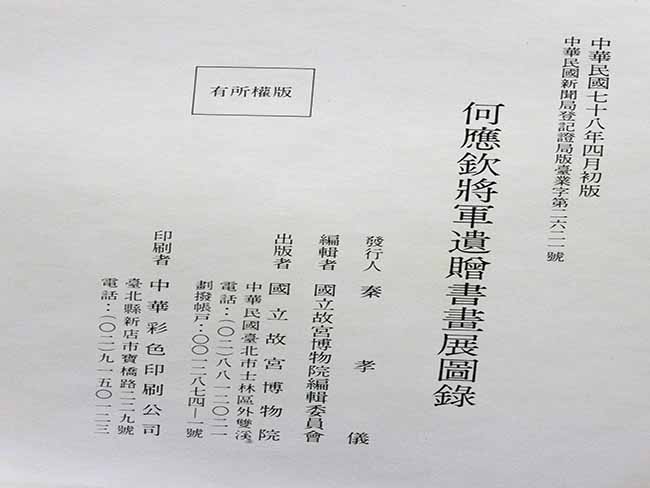 中華民國七十八年四月初版
中華民國新聞局登記證局版臺業字第二六二一號
何應欽將軍遺贈書畫展圖錄
發行人 秦孝儀
編輯者 國立故宮博物院編輯委員會
出版者 國立故宮博物院
中華民國臺北市士林區外雙溪
電話：（〇二）八八一二〇二一
劃撥帳戶：〇〇一二八七四—一號
印刷者 中華彩色印刷公司
臺北縣新店市寶橋路二二九號
電話：（〇二）九一五〇一二三
版權所有